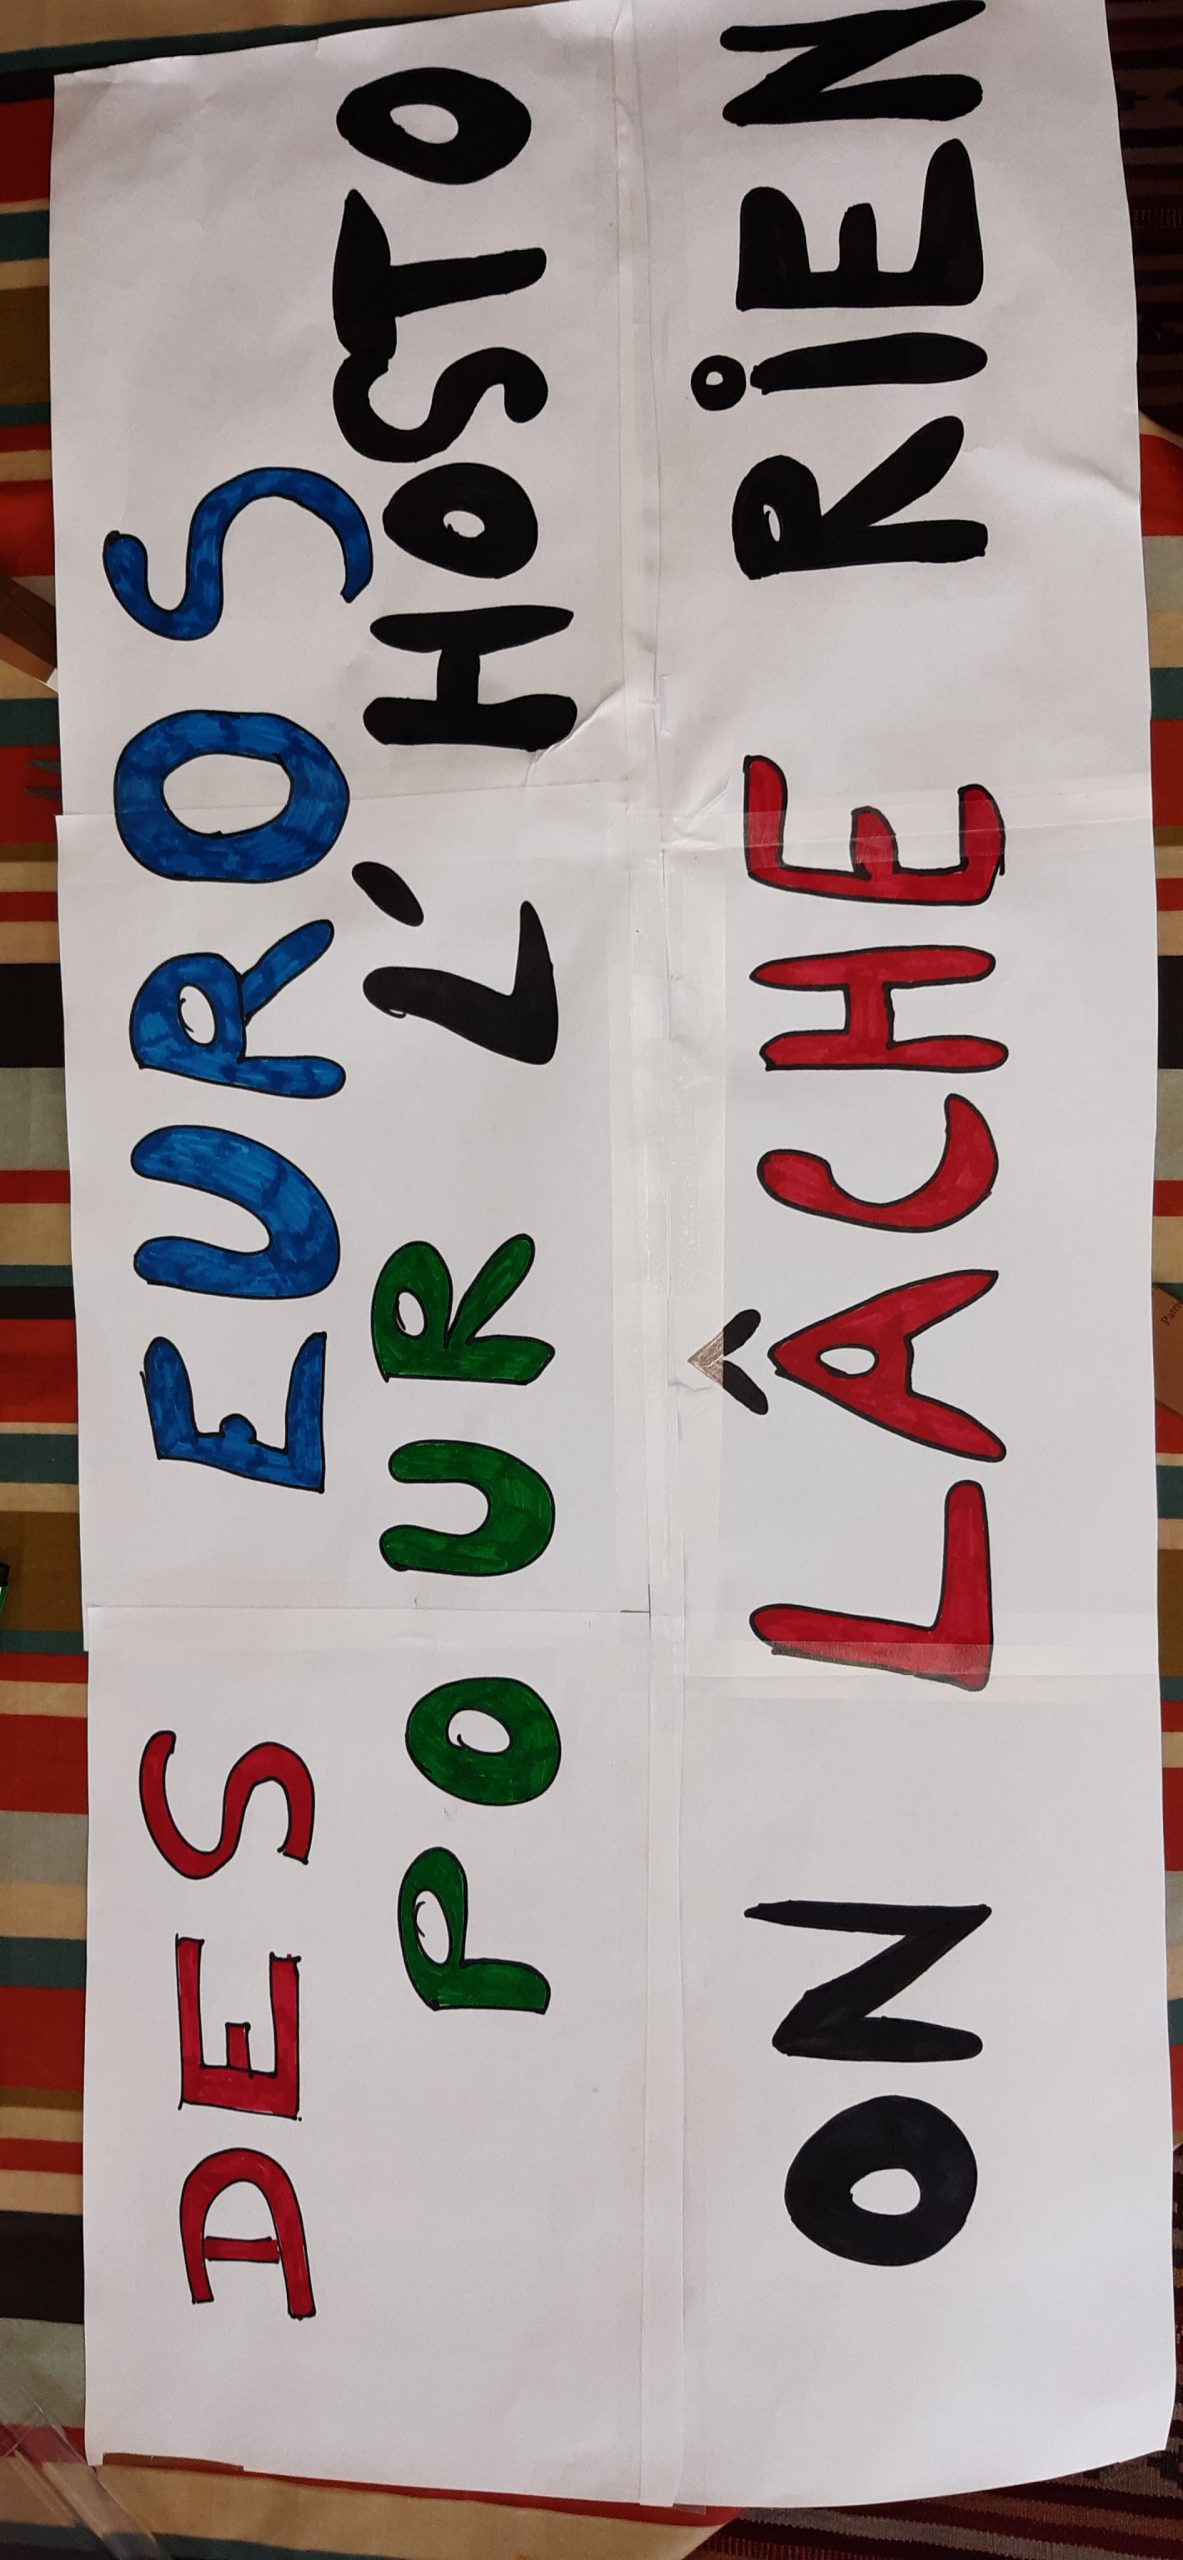 DES EUROS
POUR L'HOSTO
ON LÂCHE RIEN